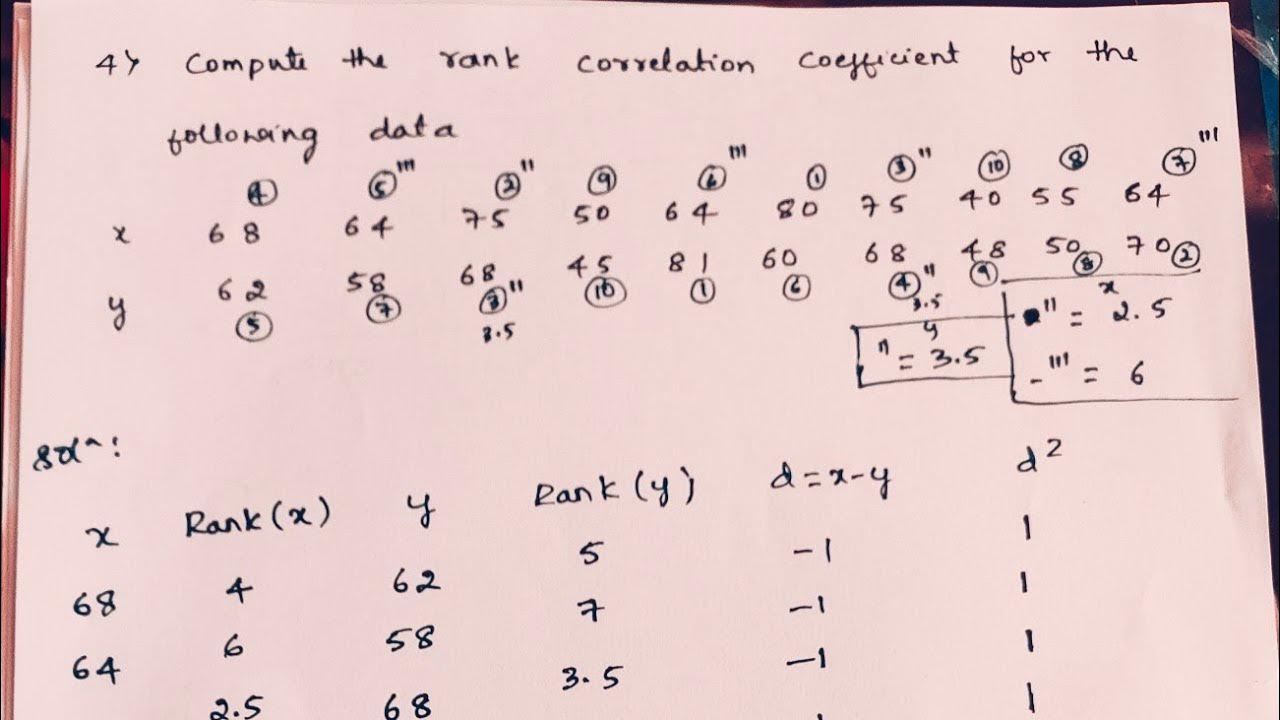 4) Compute the rank correlation coefficient for the
following data
④ ⑤''' ② '' ⑨ ⑥ ''' ① ③ '' ⑩ ⑧ ⑦ '''
x 68 64 75 50 64 80 75 40 55 64
y 62 58 68 45 81 60 68 48 50 70
⑤ ⑦ ③ '' ⑩ ① ⑥ ④ '' ⑨ ⑧ ②
3.5 3.5
y
'' = 3.5
x
'' = 2.5
- ''' = 6
Solⁿ:
x Rank(x) y Rank(y) d=x-y d²
68 4 62 5 -1 1
64 6 58 7 -1 1
2.5 68 3.5 -1 1
1